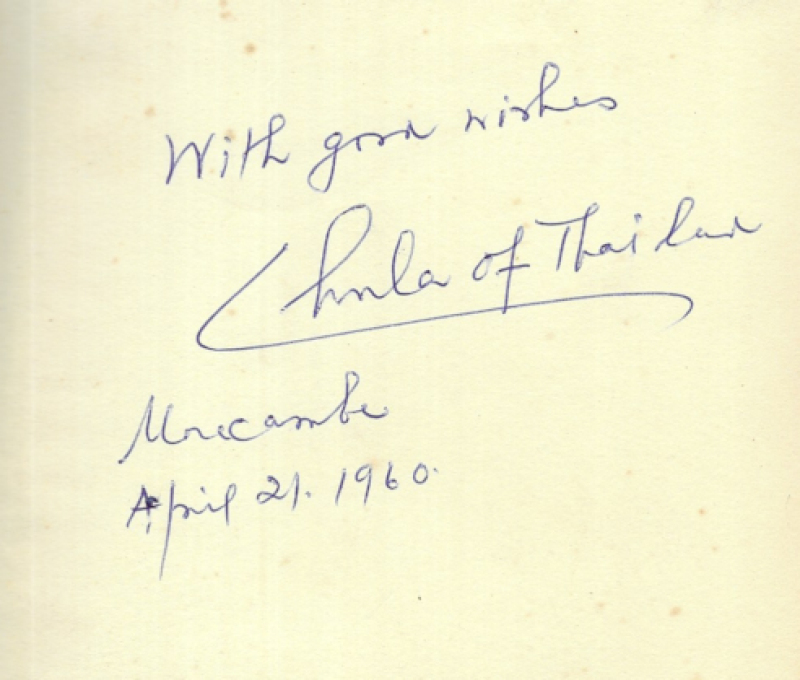 With good wishes
Chula of Thailand
Morecambe
April 21. 1960.